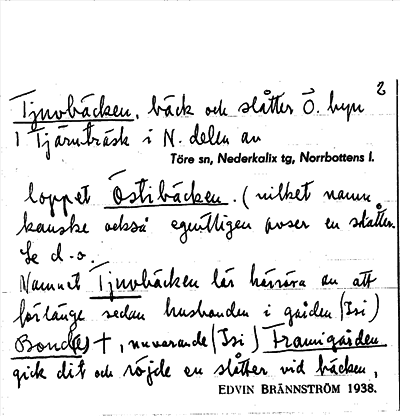 2
Tjuvbäcken, bäck och slåtter Ö. byn
1 Tjärnträsk i N. delen av
Töre sn, Nederkalix tg, Norrbottens l.
loppet Östibäcken. (vilket namn
kanske också egentligen avser en slåtter.
Se d.o.
Namnet Tjuvbäcken lär härröra av att
för länge sedan husbonden i gården (Isi)
Bond(e)s †, nuvarande (Isi) Framigården
gick dit och röjde en slåtter vid bäcken,
EDVIN BRÄNNSTRÖM 1938.